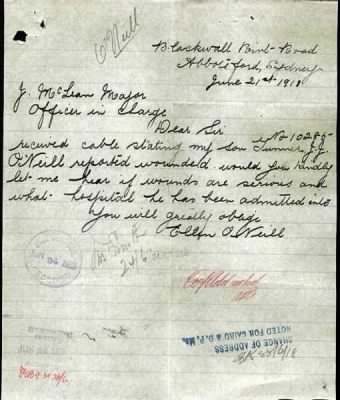 O'Neill
Blackwall Point Road
Abbotsford, Sydney
June 21st 1918
J. McLean Major
Officer in Charge
Dear Sir
No 10285
received cable stating my son Gunner J.J.
O'Neill reported wounded would you kindly
let me hear if wounds are serious and
what hospital he has been admitted into
You will greatly obage
Ellen O'Neill
24/6
CHANGE OF ADDRESS
NOTED FOR CAIRO & D.P. Ma.